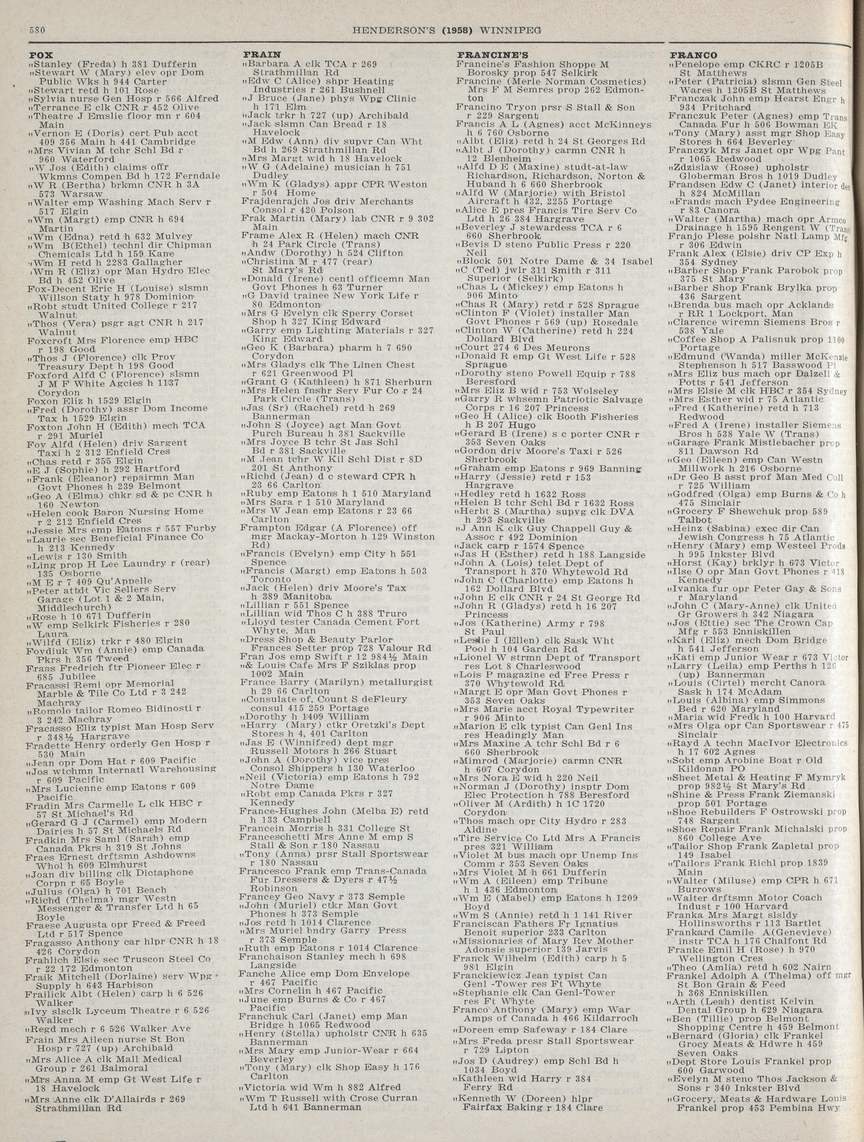 580
HENDERSON'S (1958) WINNIPEG
FOX
„Stanley (Freda) h 381 Dufferin
„Stewart W (Mary) elev opr Dom
Public Wks h 944 Carter
„Stewart retd h 101 Rose
„Sylvia nurse Gen Hosp r 566 Alfred
„Terrance E clk CNR r 452 Olive
„Theatre J Emslie floor mn r 604
Main
„Vernon E (Doris) cert Pub acct
409 356 Main h 441 Cambridge
„Mrs Vivian M tchr Schl Bd r
960 Waterford
„W Jos (Edith) claims offr
Wkmns Compen Bd h 172 Ferndale
„W R (Bertha) brkmn CNR h 3A
573 Warsaw
„Walter emp Washing Mach Serv r
517 Elgin
„Wm (Margt) emp CNR h 694
Martin
„Wm (Edna) retd h 632 Mulvey
„Wm B(Ethel) technl dir Chipman
Chemicals Ltd h 159 Kane
„Wm H retd h 2283 Gallagher
„Wm R (Eliz) opr Man Hydro Elec
Bd h 452 Olive
Fox-Decent Eric H (Louise) slsmn
Willson Staty h 978 Dominion
„Robt studt United College r 217
Walnut
„Thos (Vera) psgr agt CNR h 217
Walnut
Foxcroft Mrs Florence emp HBC
r 198 Good
„Thos J (Florence) clk Prov
Treasury Dept h 198 Good
Foxford Alfd C (Florence) slsmn
J M F White Agcies h 1137
Corydon
Foxon Eliz h 1529 Elgin
„Fred (Dorothy) assr Dom Income
Tax h 1529 Elgin
Foxton John H (Edith) mech TCA
r 291 Muriel
Foy Alfd (Helen) driv Sargent
Taxi h 2 312 Enfield Cres
„Chas retd r 355 Elgin
„E J (Sophie) h 292 Hartford
„Frank (Eleanor) repairmn Man
Govt Phones h 239 Belmont
„Geo A (Elma) chkr sd & pc CNR h
160 Newton
„Helen cook Baron Nursing Home
r 2 212 Enfield Cres
„Jessie Mrs emp Eatons r 557 Furby
„Laurie sec Beneficial Finance Co
h 213 Kennedy
„Lewis r 130 Smith
„Ling prop H Lee Laundry r (rear)
135 Osborne
„M E r 7 409 Qu'Appelle
„Peter attdt Vic Sellers Serv
Garage (Lot 1 & 2 Main,
Middlechurch)
„Rose h 10 671 Dufferin
„W emp Selkirk Fisheries r 280
Laura
„Wilfd (Eliz) trkr r 480 Elgin
Fovdiuk Wm (Annie) emp Canada
Pkrs h 356 Tweed
Frans Fredrich ftr Pioneer Elec r
685 Jubilee
Fracassi Remi opr Memorial
Marble & Tile Co Ltd r 3 242
Machray
„Romolo tailor Romeo Bidinosti r
3 242 Machray
Fracasso Eliz typist Man Hosp Serv
r 348½ Hargrave
Fradette Henry orderly Gen Hosp r
530 Main
„Jean opr Dom Hat r 609 Pacific
„Jos wtchmn Internatl Warehousing
r 609 Pacific
„Mrs Lucienne emp Eatons r 609
Pacific
Fradin Mrs Carmelle L clk HBC r
57 St Michael's Rd
„Gerard G J (Carmel) emp Modern
Dairies h 57 St Michaels Rd
Fradkin Mrs Saml (Sarah) emp
Canada Pkrs h 319 St Johns
Fraes Ernest drftsmn Ashdowns
Whol h 609 Elmhurst
„Joan div billing clk Dictaphone
Corpn r 65 Boyle
„Julius (Olga) h 701 Beach
„Richd (Thelma) mgr Westn
Messenger & Transfer Ltd h 65
Boyle
Fraese Augusta opr Freed & Freed
Ltd r 517 Spence
Fragasso Anthony car hlpr CNR h 18
426 Corydon
Frahlich Elsie sec Truscon Steel Co
r 22 172 Edmonton
Fraik Mitchell (Dorlaine) serv Wpg
Supply h 643 Harbison
Frailick Albt (Helen) carp h 6 526
Walker
„Ivy slsclk Lyceum Theatre r 6 526
Walker
„Regd mech r 6 526 Walker Ave
Frain Mrs Aileen nurse St Bon
Hosp r 727 (up) Archibald
„Mrs Alice A clk Mall Medical
Group r 261 Balmoral
„Mrs Anna M emp Gt West Life r
18 Havelock
„Mrs Anne clk D'Allairds r 269
Strathmillan Rd
FRAIN
„Barbara A clk TCA r 269
Strathmillan Rd
„Edw C (Alice) shpr Heating
Industries r 261 Bushnell
„J Bruce (Jane) phys Wpg Clinic
h 171 Elm
„Jack trkr h 727 (up) Archibald
„Jack slsmn Can Bread r 18
Havelock
„M Edw (Ann) div supvr Can Wht
Bd h 269 Strathmillan Rd
„Mrs Margt wid h 18 Havelock
„W G (Adelaine) musician h 751
Dudley
„Wm K (Gladys) appr CPR Weston
r 504 Home
Frajdenrajch Jos driv Merchants
Consol r 420 Polson
Frak Martin (Mary) lab CNR r 9 302
Main
Frame Alex R (Helen) mach CNR
h 24 Park Circle (Trans)
„Andw (Dorothy) h 524 Clifton
„Christina M r 477 (rear)
St Mary's Rd
„Donald (Irene) centl officemn Man
Govt Phones h 63 Turner
„G David trainee New York Life r
80 Edmonton
„Mrs G Evelyn clk Sperry Corset
Shop h 327 King Edward
„Garry emp Lighting Materials r 327
King Edward
„Geo K (Barbara) pharm h 7 690
Corydon
„Mrs Gladys clk The Linen Chest
r 621 Greenwood Pl
„Grant G (Kathleen) h 871 Sherburn
„Mrs Helen fnshr Serv Fur Co r 24
Park Circle (Trans)
„Jas (Sr) (Rachel) retd h 269
Bannerman
„John S (Joyce) agt Man Govt
Purch Bureau h 381 Sackville
„Mrs Joyce B tchr St Jas Schl
Bd r 381 Sackville
„M Jean tchr W Kil Schl Dist r 8D
201 St Anthony
„Richd (Jean) d c steward CPR h
23 66 Carlton
„Ruby emp Eatons h 1 510 Maryland
„Mrs Sara r 1 510 Maryland
„Mrs W Jean emp Eatons r 23 66
Carlton
Frampton Edgar (A Florence) off
mgr Mackay-Morton h 129 Winston
Rd)
„Francis (Evelyn) emp City h 551
Spence
„Francis (Margt) emp Eatons h 503
Toronto
„Jack (Helen) driv Moore's Tax
h 389 Manitoba
„Lillian r 551 Spence
„Lillian wid Thos C h 388 Truro
„Lloyd tester Canada Cement Fort
Whyte, Man
„Dress Shop & Beauty Parlor
Frances Setter prop 728 Valour Rd
Fran Jos emp Swift r 12 984½ Main
„& Louis Cafe Mrs F Sziklas prop
1002 Main
France Barry (Marilyn) metallurgist
h 29 66 Carlton
„Consulate of, Count S deFleury
consul 415 259 Portage
„Dorothy h 1409 William
„Harry (Mary) ctkr Oretzki's Dept
Stores h 4, 401 Carlton
„Jas E (Winnifred) dept mgr
Russell Motors h 266 Stuart
„John A (Dorothy) vice pres
Consol Shippers h 130 Waterloo
„Neil (Victoria) emp Eatons h 792
Notre Dame
„Robt emp Canada Pkrs r 327
Kennedy
France-Hughes John (Melba E) retd
h 133 Campbell
Francein Morris h 331 College St
Franceschetti Mrs Anne M emp S
Stall & Son r 180 Nassau
„Tony (Anna) prsr Stall Sportswear
r 180 Nassau
Francesco Frank emp Trans-Canada
Fur Dressers & Dyers r 47½
Robinson
Francey Geo Navy r 373 Semple
„John (Muriel) ctkr Man Govt
Phones h 373 Semple
„Jos retd h 1014 Clarence
„Mrs Muriel bndry Garry Press
r 373 Semple
„Ruth emp Eatons r 1014 Clarence
Franchaison Stanley mech h 698
Langside
Fanche Alice emp Dom Envelope
r 467 Pacific
„Mrs Cornelin h 467 Pacific
„June emp Burns & Co r 467
Pacific
Franchuk Carl (Janet) emp Man
Bridge h 1065 Redwood
„Henry (Stella) upholstr CNR h 635
Bannerman
„Mrs Mary emp Junior-Wear r 664
Beverley
„Tony (Mary) clk Shop Easy h 176
Carlton
„Victoria wid Wm h 882 Alfred
„Wm T Russell with Crose Curran
Ltd h 641 Bannerman
FRANCINE'S
Francine's Fashion Shoppe M
Borosky prop 547 Selkirk
Francine (Merle Norman Cosmetics)
Mrs F M Semres prop 262 Edmon-
ton
Francino Tryon prsr S Stall & Son
r 229 Sargent
Francis A L (Agnes) acct McKinneys
h 6 760 Osborne
„Albt (Eliz) retd h 24 St Georges Rd
„Albt J (Dorothy) carmn CNR h
12 Blenheim
„Alfd D E (Maxine) studt-at-law
Richardson, Richardson, Norton &
Huband h 6 660 Sherbrook
„Alfd W (Marjorie) with Bristol
Aircraft h 432, 2255 Portage
„Alice E pres Francis Tire Serv Co
Ltd h 26 384 Hargrave
„Beverley J stewardess TCA r 6
660 Sherbrook
„Bevis D steno Public Press r 220
Neil
„Block 501 Notre Dame & 34 Isabel
„C (Ted) jwlr 311 Smith r 311
Superior (Selkirk)
„Chas L (Mickey) emp Eatons h
906 Minto
„Chas R (Mary) retd r 528 Sprague
„Clinton F (Violet) installer Man
Govt Phones r 569 (up) Rosedale
„Clinton W (Catherine) retd h 224
Dollard Blvd
„Court 274 6 Des Meurons
„Donald R emp Gt West Life r 528
Sprague
„Dorothy steno Powell Equip r 788
Beresford
„Mrs Eliz B wid r 753 Wolseley
„Garry R whsemn Patriotic Salvage
Corps r 16 207 Princess
„Geo H (Alice) clk Booth Fisheries
h B 207 Hugo
„Gerard B (Irene) s c porter CNR r
353 Seven Oaks
„Gordon driv Moore's Taxi r 526
Sherbrook
„Graham emp Eatons r 969 Banning
„Harry (Jessie) retd r 153
Hargrave
„Hedley retd h 1632 Ross
„Helen B tchr Schl Bd r 1632 Ross
„Herbt S (Martha) supvg clk DVA
h 293 Sackville
„J Ann K clk Guy Chappell Guy &
Assoc r 492 Dominion
„Jack carp r 1574 Spence
„Jas H (Esther) retd h 188 Langside
„John A (Lois) telet Dept of
Transport h 370 Whytewold Rd
„John C (Charlotte) emp Eatons h
162 Dollard Blvd
„John E clk CNR r 24 St George Rd
„John R (Gladys) retd h 16 207
Princess
„Jos (Katherine) Army r 798
St Paul
„Leslie I (Ellen) clk Sask Wht
Pool h 104 Garden Rd
„Lionel W strmn Dept of Transport
res Lot 8 Charleswood
„Lois P magazine ed Free Press r
370 Whytewold Rd
„Margt E opr Man Govt Phones r
353 Seven Oaks
„Mrs Marie acct Royal Typewriter
r 906 Minto
„Marion E clk typist Can Genl Ins
res Headingly Man
„Mrs Maxine A tchr Schl Bd r 6
660 Sherbrook
„Mimrod (Marjorie) carmn CNR
h 607 Corydon
„Mrs Nora E wid h 220 Neil
„Norman J (Dorothy) insptr Dom
Elec Protection h 788 Beresford
„Oliver M (Ardith) h 1C 1720
Corydon
„Thos mach opr City Hydro r 283
Aldine
„Tire Service Co Ltd Mrs A Francis
pres 321 William
„Violet M bus mach opr Unemp Ins
Comm r 353 Seven Oaks
„Mrs Violet M h 661 Dufferin
„Wm A (Eileen) emp Tribune
h 1 436 Edmonton
„Wm E (Mabel) emp Eatons h 1209
Boyd
„Wm S (Annie) retd h 1 141 River
Franciscan Fathers Fr Ignatius
Benoit superior 233 Carlton
„Missionaries of Mary Rev Mother
Adonsie superior 139 Jarvis
Franck Wilhelm (Edith) carp h 5
981 Elgin
Franckiewicz Jean typist Can
Genl -Tower res Ft Whyte
„Stephanie clk Can Genl-Tower
res Ft Whyte
Franco Anthony (Mary) emp War
Amps of Canada h 466 Kildarroch
„Doreen emp Safeway r 184 Clare
„Mrs Freda presr Stall Sportswear
r 729 Lipton
„Jos D (Audrey) emp Schl Bd h
1034 Boyd
„Kathleen wid Harry r 384
Ferry Rd
„Kenneth W (Doreen) hlpr
Fairfax Baking r 184 Clare
FRANCO
„Penelope emp CKRC r 1205B
St Matthews
„Peter (Patricia) slsmn Gen Steel
Wares h 1205B St Matthews
Franczak John emp Hearst Engr h
934 Pritchard
Franczuk Peter (Agnes) emp Trans
Canada Fur h 506 Bowman EK
„Tony (Mary) asst mgr Shop Easy
Stores h 664 Beverley
Franczyk Mrs Janet opr Wpg Pant
r 1065 Redwood
„Zdzislaw (Rose) upholstr
Globerman Bros h 1019 Dudley
Frandsen Edw C (Janet) interior des
h 824 McMillan
„Frands mach Pydee Engineering
r 83 Canora
„Walter (Martha) mach opr Armco
Drainage h 1595 Rengent W (Trans
Franjo Plese polshr Natl Lamp Mfg
r 306 Edwin
Frank Alex (Elsie) driv CP Exp h
354 Sydney
„Barber Shop Frank Parobok prop
375 St Mary
„Barber Shop Frank Brylka prop
436 Sargent
„Brenda bus mach opr Acklands
r RR 1 Lockport, Man
„Clarence wiremn Siemens Bros r
538 Yale
„Coffee Shop A Palisnuk prop 1100
Portage
„Edmund (Wanda) miller McKenzie
Stephenson h 517 Basswood Pl
„Mrs Eliz bus mach opr Dalzell &
Potts r 541 Jefferson
„Mrs Elsie M clk HBC r 354 Sydney
„Mrs Esther wid r 75 Atlantic
„Fred (Katherine) retd h 713
Redwood
„Fred A (Irene) installer Siemens
Bros h 538 Yale W (Trans)
„Garage Frank Mistlebacher prop
811 Dawson Rd
„Geo (Eileen) emp Can Westn
Millwork h 216 Osborne
„Dr Geo B asst prof Man Med Coll
r 725 William
„Godfred (Olga) emp Burns & Co h
475 Sinclair
„Grocery F Shewchuk prop 589
Talbot
„Heinz (Sabina) exec dir Can
Jewish Congress h 75 Atlantic
„Henry (Mary) emp Westeel Prods
h 995 Inkster Blvd
„Horst (Kay) brklyr h 673 Victor
„Ilse O opr Man Govt Phones r 418
Kennedy
„Ivanka fur opr Peter Gay & Sons
r Maryland
„John C (Mary-Anne) clk United
Gr Growers h 342 Niagara
„Jos (Ettie) sec The Crown Cap
Mfg r 553 Enniskillen
„Karl (Eliz) mech Dom Bridge
h 541 Jefferson
„Kati emp Junior Wear r 673 Victor
„Larry (Leila) emp Perths h 126
(up) Bannerman
„Louis (Cirtel) mercht Canora
Sask h 174 McAdam
„Louis (Albina) emp Simmons
Bed r 620 Maryland
„Maria wid Fredk h 100 Harvard
„Mrs Olga opr Can Sportswear r 475
Sinclair
„Rayd A techn MacIvor Electronics
h 17 602 Agnes
„Sobt emp Arobine Boat r Old
Kildonan PO
„Sheet Metal & Heating F Mymryk
prop 982½ St Mary's Rd
„Shine & Press Frank Ziemanski
prop 501 Portage
„Shoe Rebuilders F Ostrowski prop
748 Sargent
„Shoe Repair Frank Michalski prop
860 College Ave
„Tailor Shop Frank Zapletal prop
149 Isabel
„Tailors Frank Richl prop 1839
Main
„Walter (Miluse) emp CPR h 671
Burrows
„Walter drftsmn Motor Coach
Indust r 100 Harvard
Franka Mrs Margt slsldy
Hollinsworths r 113 Bartlet
Frankard Camille A(Genevieve)
instr TCA h 176 Chalfont Rd
Franke Emil H (Rose) h 970
Wellington Cres
„Theo (Amlia) retd h 602 Nairn
Frankel Adolph A (Thelma) off mgr
St Bon Grain & Feed
h 368 Enniskillen
„Arth (Leah) dentist Kelvin
Dental Group h 629 Niagara
„Ben (Tillie) prop Belmont
Shopping Centre h 459 Belmont
„Bernard (Gloria) clk Frankel
Grocy Meats & Hdwre h 459
Seven Oaks
„Dept Store Louis Frankel prop
600 Garwood
„Evelyn M steno Thos Jackson &
Sons r 340 Inkster Blvd
„Grocery, Meats & Hardware Louis
Frankel prop 453 Pembina Hwy